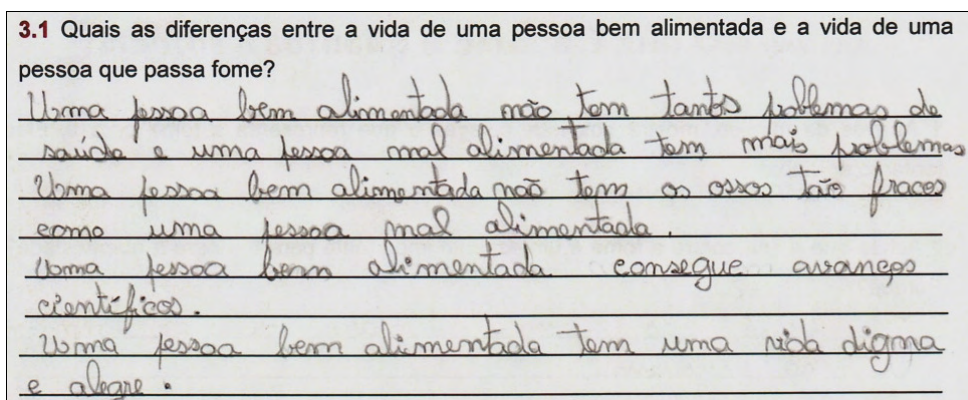 3.1 Quais as diferenças entre a vida de uma pessoa bem alimentada e a vida de uma
pessoa que passa fome?
Uma pessoa bem alimentada não tem tantos problemas de
saúde e uma pessoa mal alimentada tem mais problemas
Uma pessoa bem alimentada não tem os ossos tão fracos
como uma pessoa mal alimentada.
Uma pessoa bem alimentada consegue avanços
científicos.
Uma pessoa bem alimentada tem uma vida digna
e alegre.